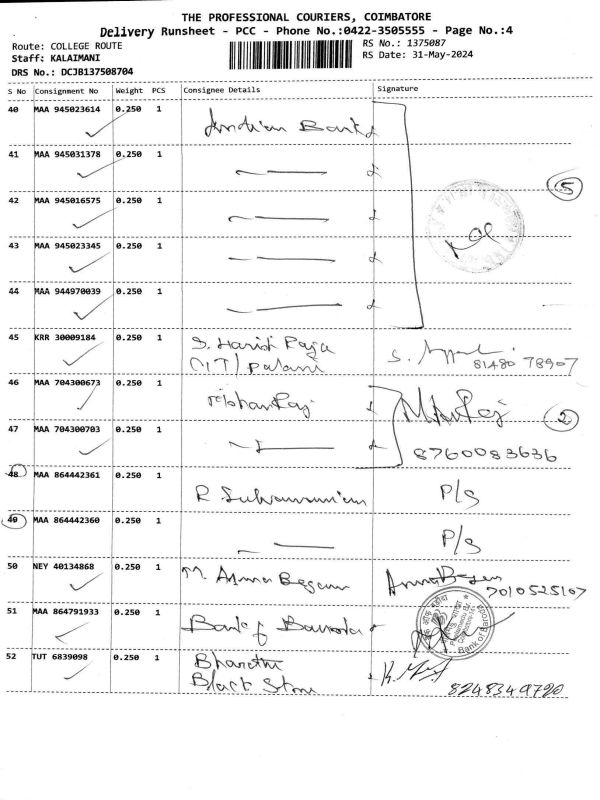 THE PROFESSIONAL COURIERS, COIMBATORE
Delivery Runsheet - PCC - Phone No.:0422-3505555 - Page No.:4
Route: COLLEGE ROUTE
RS No.: 1375087
Staff: KALAIMANI
RS Date: 31-May-2024
DRS No.: DCJB137508704
S No Consignment No Weight PCS Consignee Details Signature
40 MAA 945023614 0.250 1 Indian Bank
41 MAA 945031378 0.250 1
5
42 MAA 945016575 0.250 1
43 MAA 945023345 0.250 1
44 MAA 944970039 0.250 1
45 KRR 30009184 0.250 1 S. Harish Raja
CIT/ Palani
81480 78907
46 MAA 704300673 0.250 1
2
47 MAA 704300703 0.250 1
8760083636
48 MAA 864442361 0.250 1 R Subramaniam P/S
49 MAA 864442360 0.250 1 P/S
50 NEY 40134868 0.250 1 M. Asma Begam
7010525107
51 MAA 864791933 0.250 1 Bank of Baroda
Bank of Baroda
52 TUT 6839098 0.250 1 Bharathi
Black Stone
8248349720